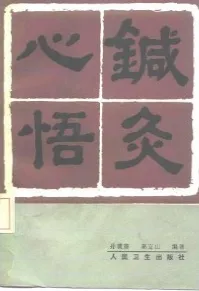 鍼灸
心悟
高立山 编著
人民卫生出版社